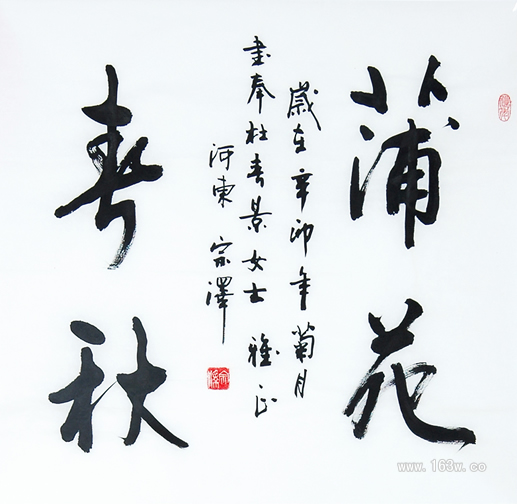 蒲花
春秋
歲在辛卯年菊月
書奉杜春景女士 雅正
河東 宗澤
www.163w.co